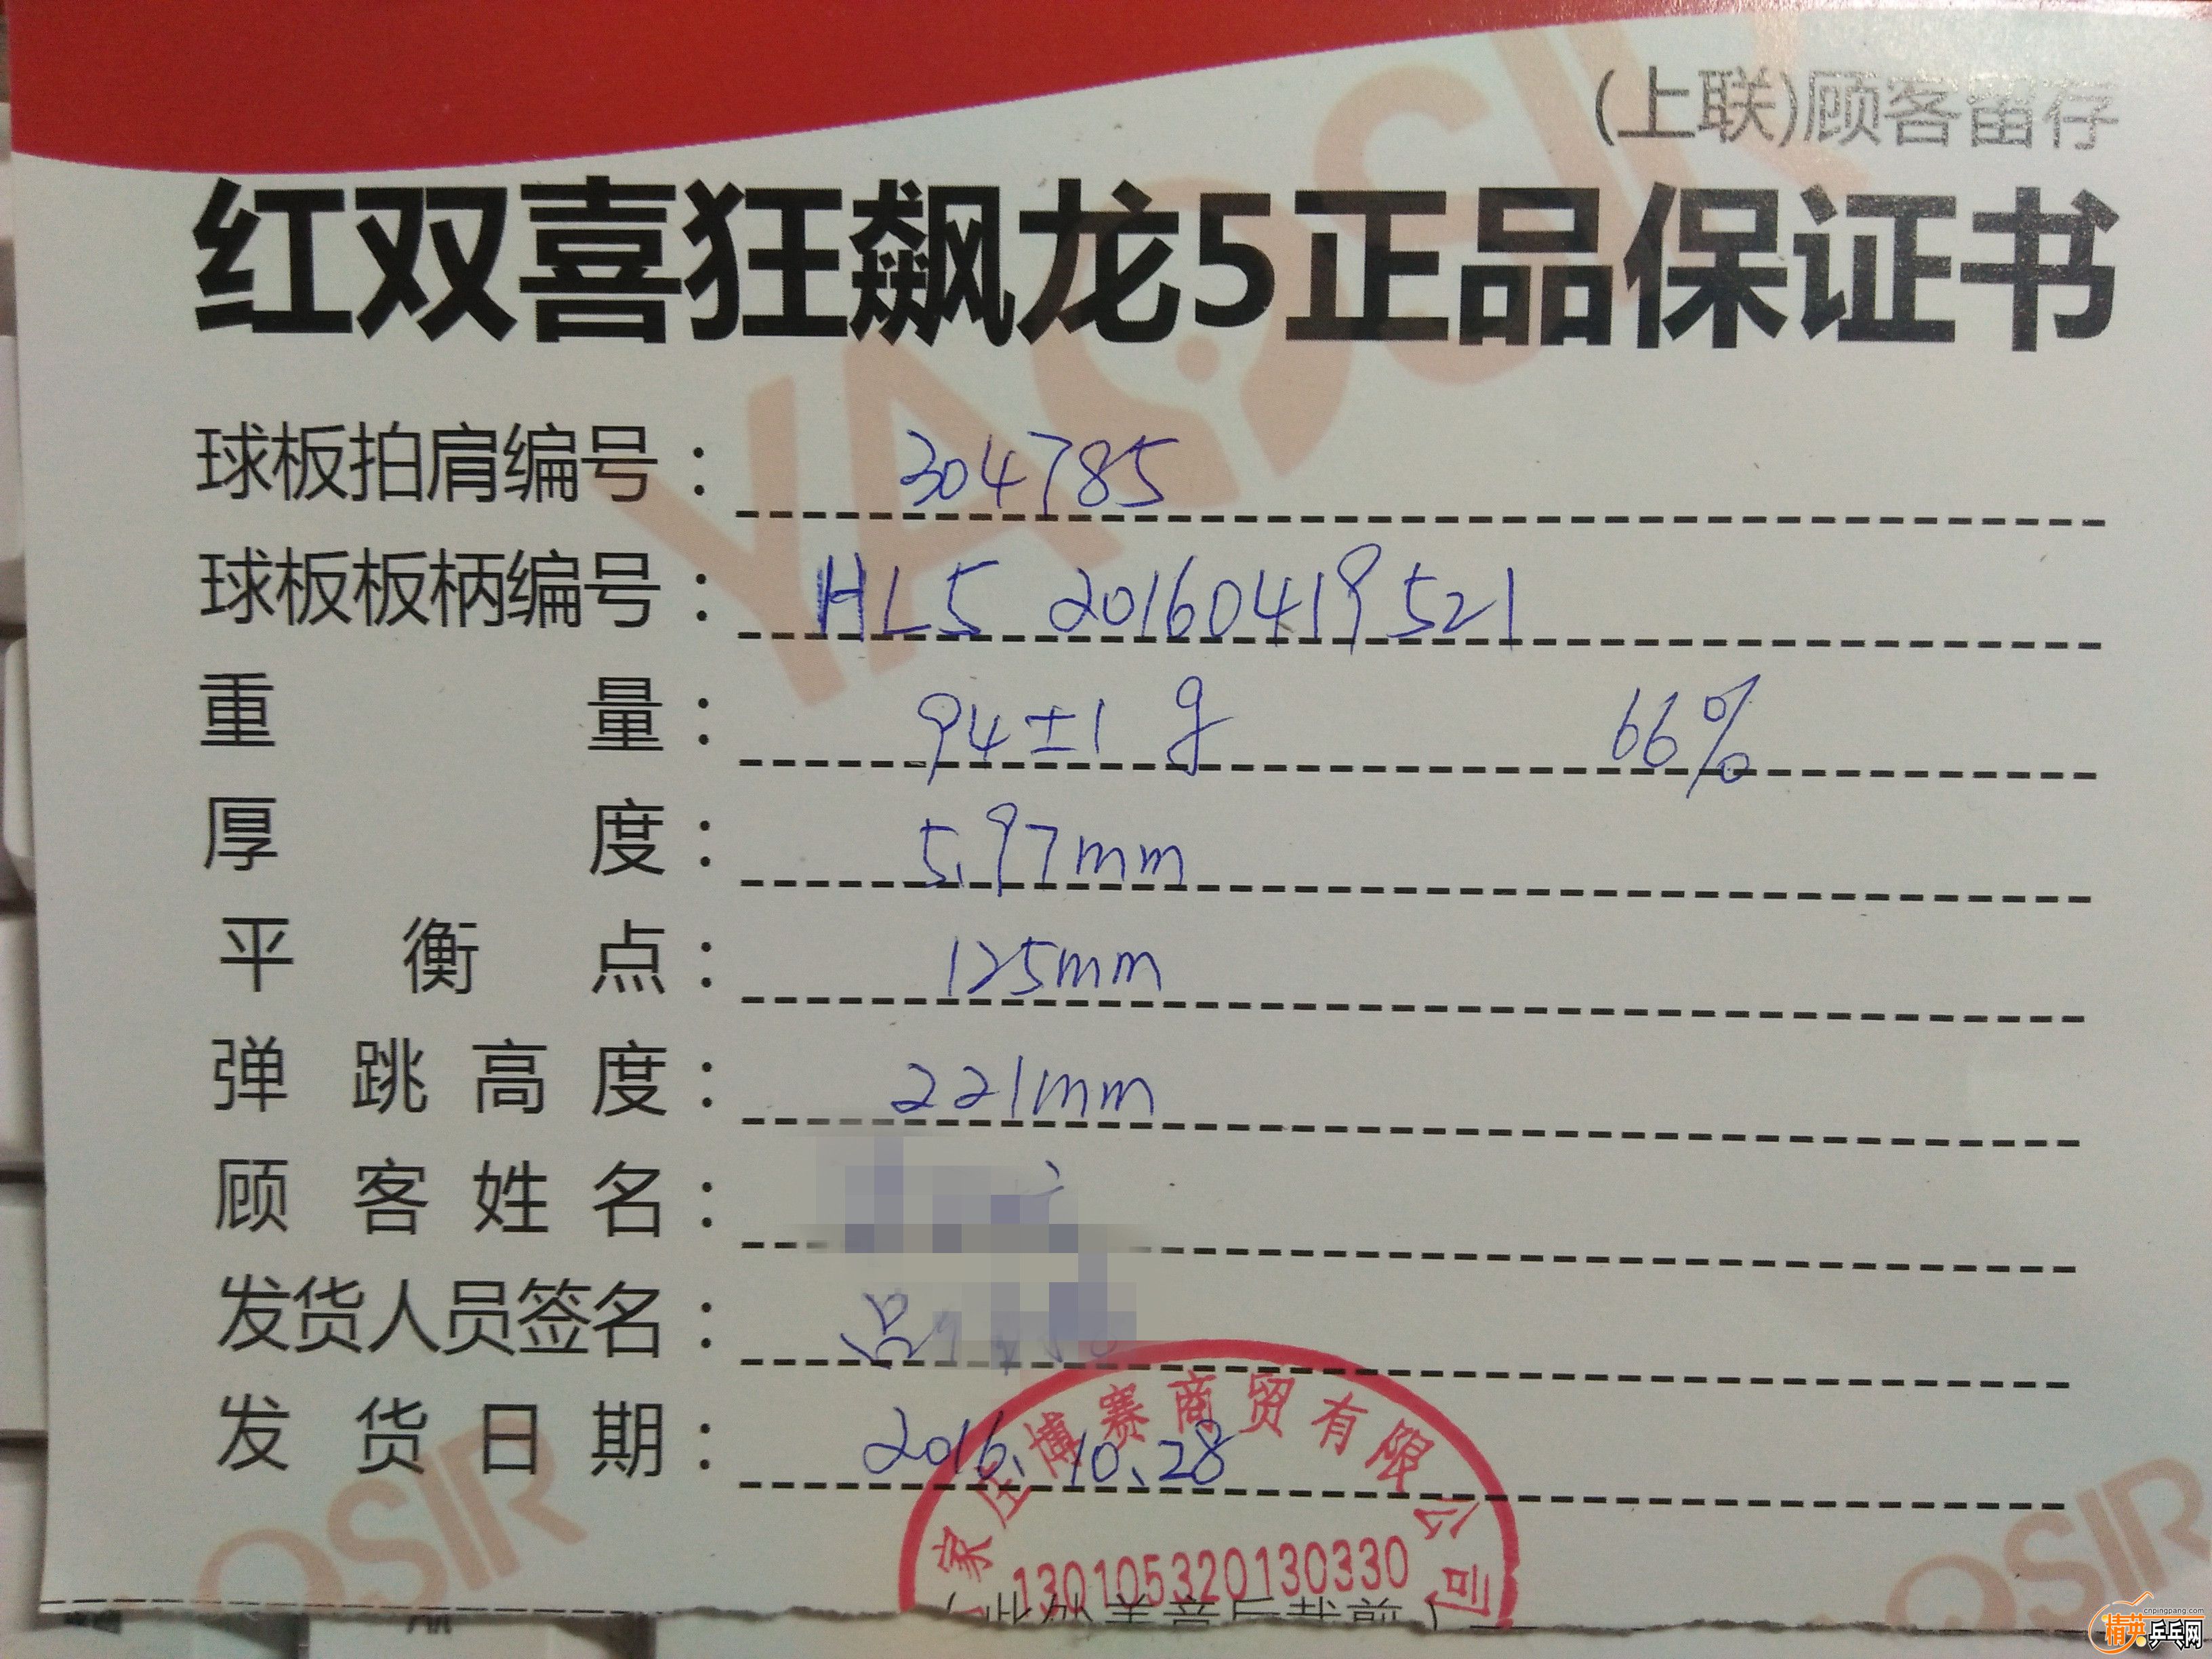 (上联)顾客留存
YAOSIR
红双喜狂飙龙5正品保证书
球板拍肩编号： 304785
球板板柄编号： HL5 20160419521
重量： 94±1 g 66%
厚度： 5.97mm
平衡点： 125mm
弹跳高度： 221mm
顾客姓名：
发货人员签名：
发货日期： 2016.10.28
家庄博赛商贸有限公司
1301053201303​30
(此处盖章后裁剪)
OSIR
OSIR
cnpingpang.com
精英乒乓网